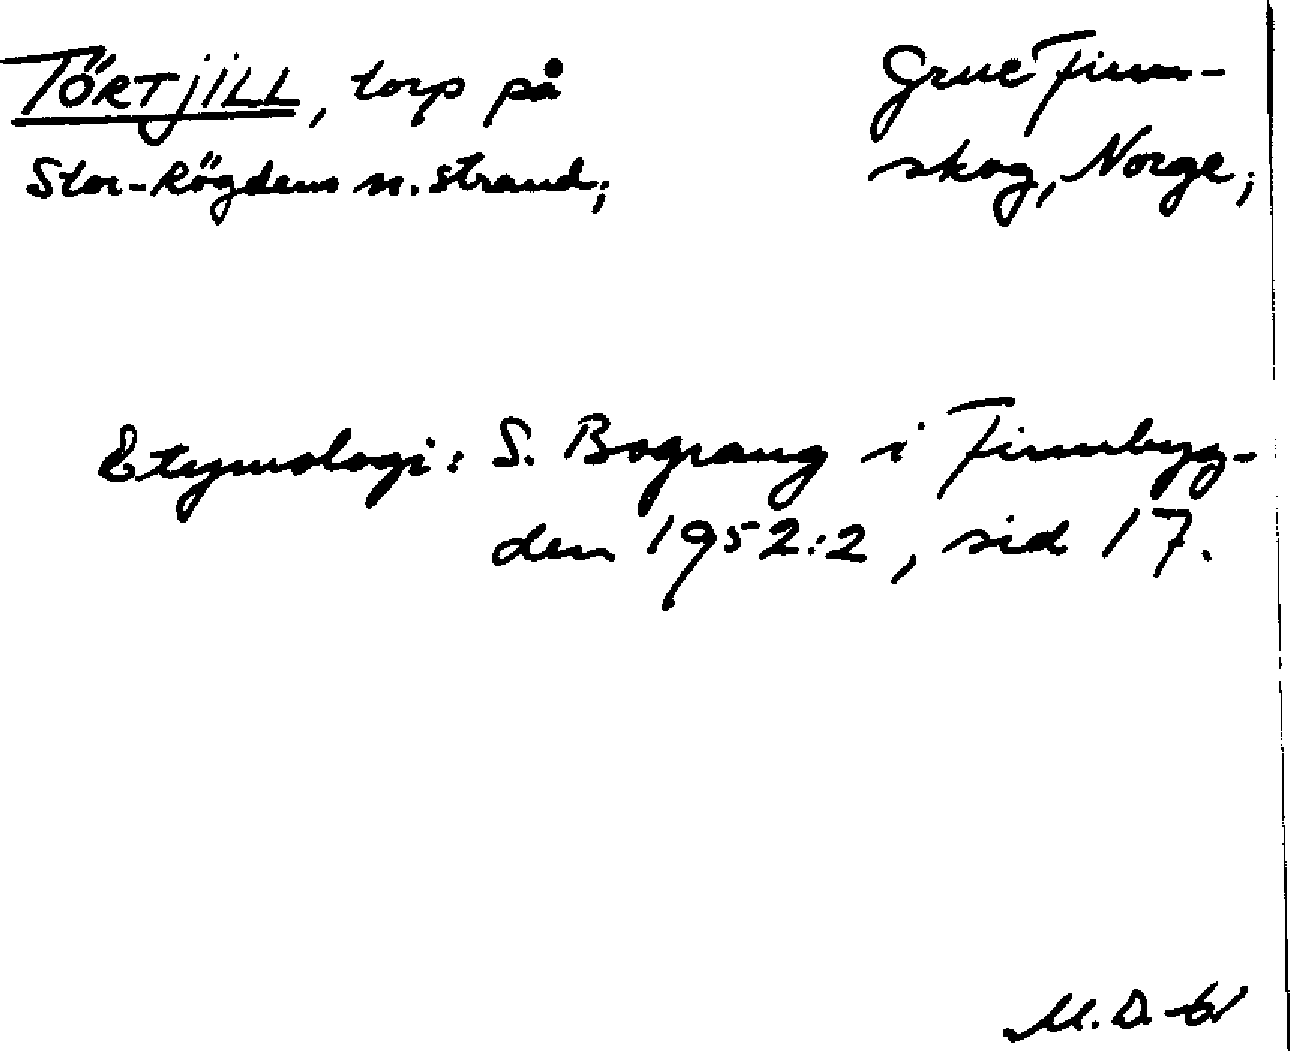 TÖRTJILL, torp på
Stor-Rögdens n. strand;
Grue Finn-
skog, Norge;
Etymologi: S. Bograng i Finnbyg-
den 1952:2, sid 17.
M. D-